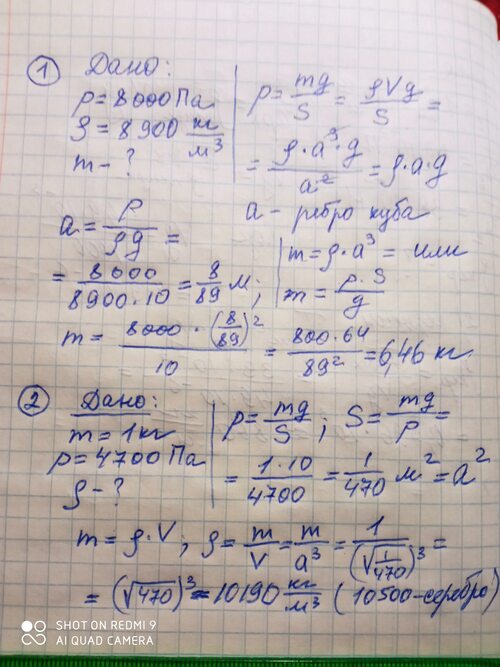 ① Дано:
p = 8000 Па
ρ = 8900 кг/м³
m - ?
p = mg/S = ρVg/S =
= ρ·a³·g/a² = ρ·a·g
a - ребро куба
a = p/ρg =
= 8000/8900·10 = 8/89 м;
m = ρ·a³ = или
m = p·S/g
m = 8000·(8/89)²/10 = 800·64/89² = 6,46 кг
② Дано:
m = 1 кг
p = 4700 Па
ρ - ?
p = mg/S; S = mg/p =
= 1·10/4700 = 1/470 м² = a²
m = ρ·V; ρ = m/V = m/a³ = 1/(√(1/470))³ =
= (√470)³ = 10190 кг/м³ (10500-серебро)
SHOT ON REDMI 9
AI QUAD CAMERA